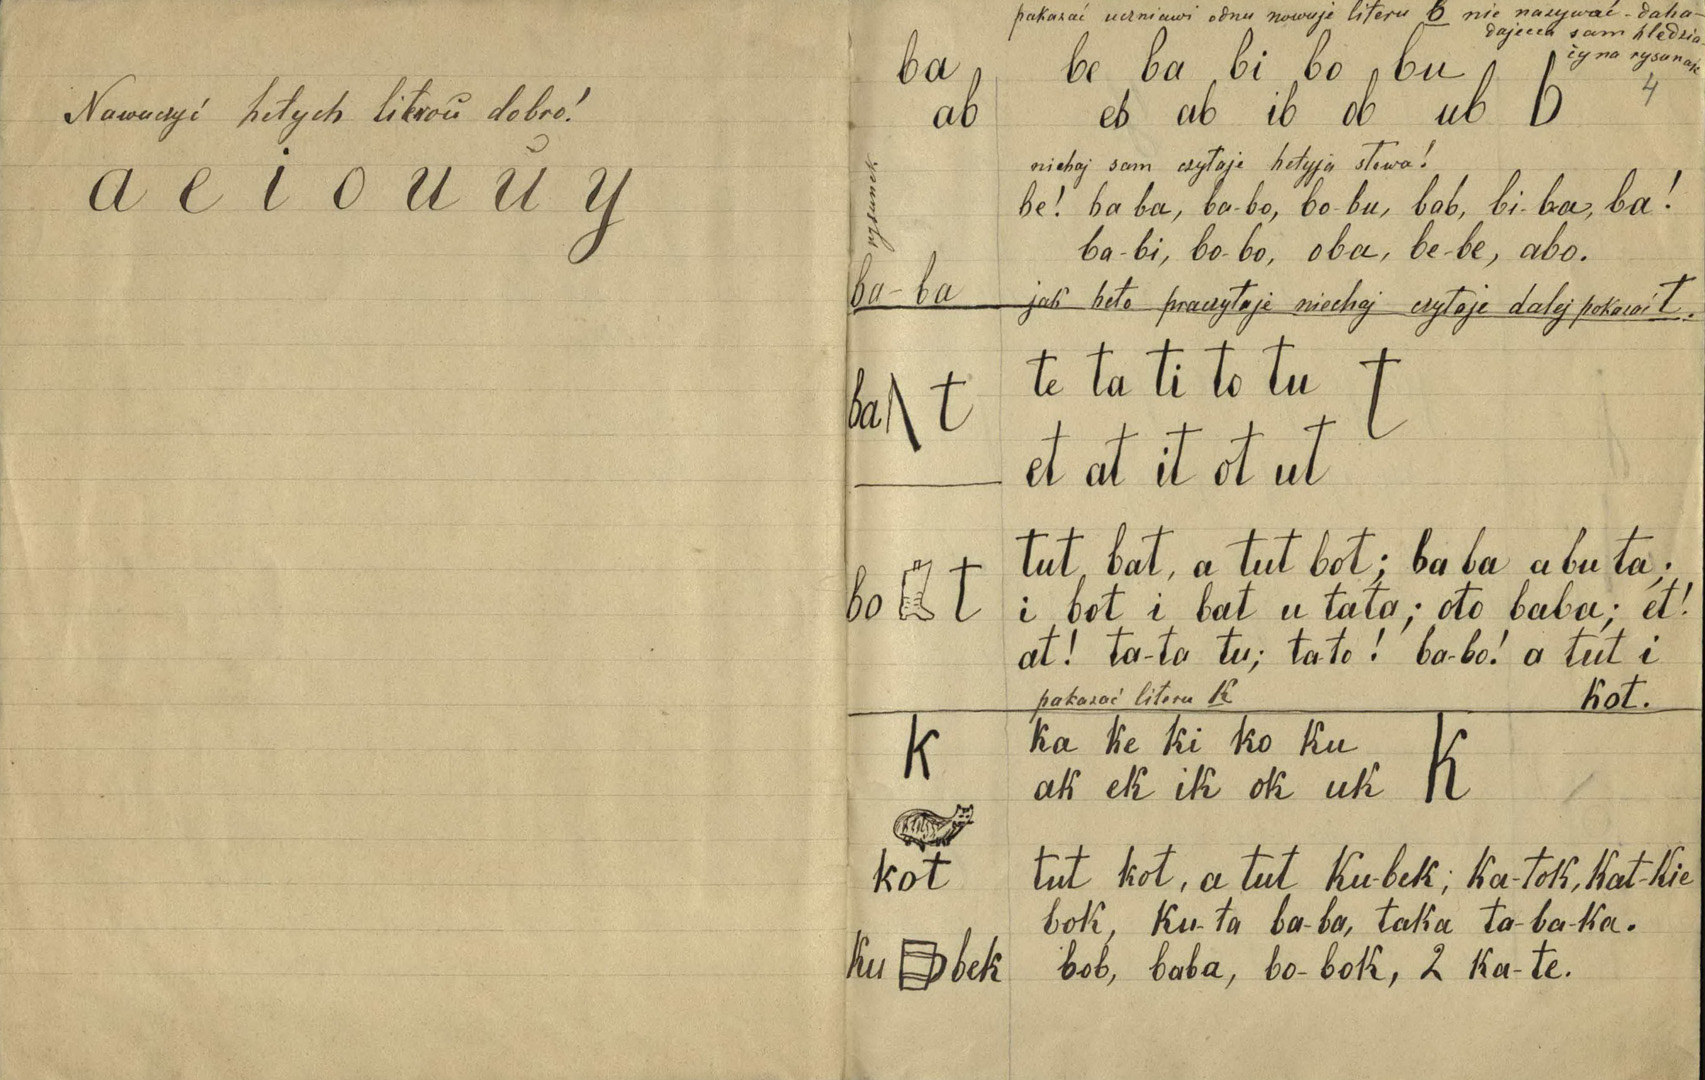 Nawuczyć hetych literoŭ dobro!
a e i o u ŭ y
pakazać uczniawi odnu nowuje literu b nie nazywać - daha-
dajecca sam hledzia-
czy na rysunak
4
ba be ba bi bo bu
ab eb ab ib ob ub b
niehaj sam czytaje hetyja słowa!
rysunek
be! ba ba, ba-bo, bo-bu, bab, bi-ba, ba!
ba-bi, bo-bo, oba, be-be, abo.
ba-ba
jak heto praczytaje niechaj czytaje dalej pokazać t.
ba t
te ta ti to tu t
et at it ot ut
bo t
tut bat, a tut bot; ba ba abu ta;
i bot i bat u tata; oto baba; et!
at! ta-ta tu; ta-to! ba-bo! a tut i
kot.
pakazać literu k
k
ka ke ki ko ku k
ak ek ik ok uk
kot
tut kot, a tut ku-bek; ka-tok, kat-kie
bok, ku-ta ba-ba, taka ta-ba-ka.
ku bek
bob, baba, bo-bok, 2 ka-te.